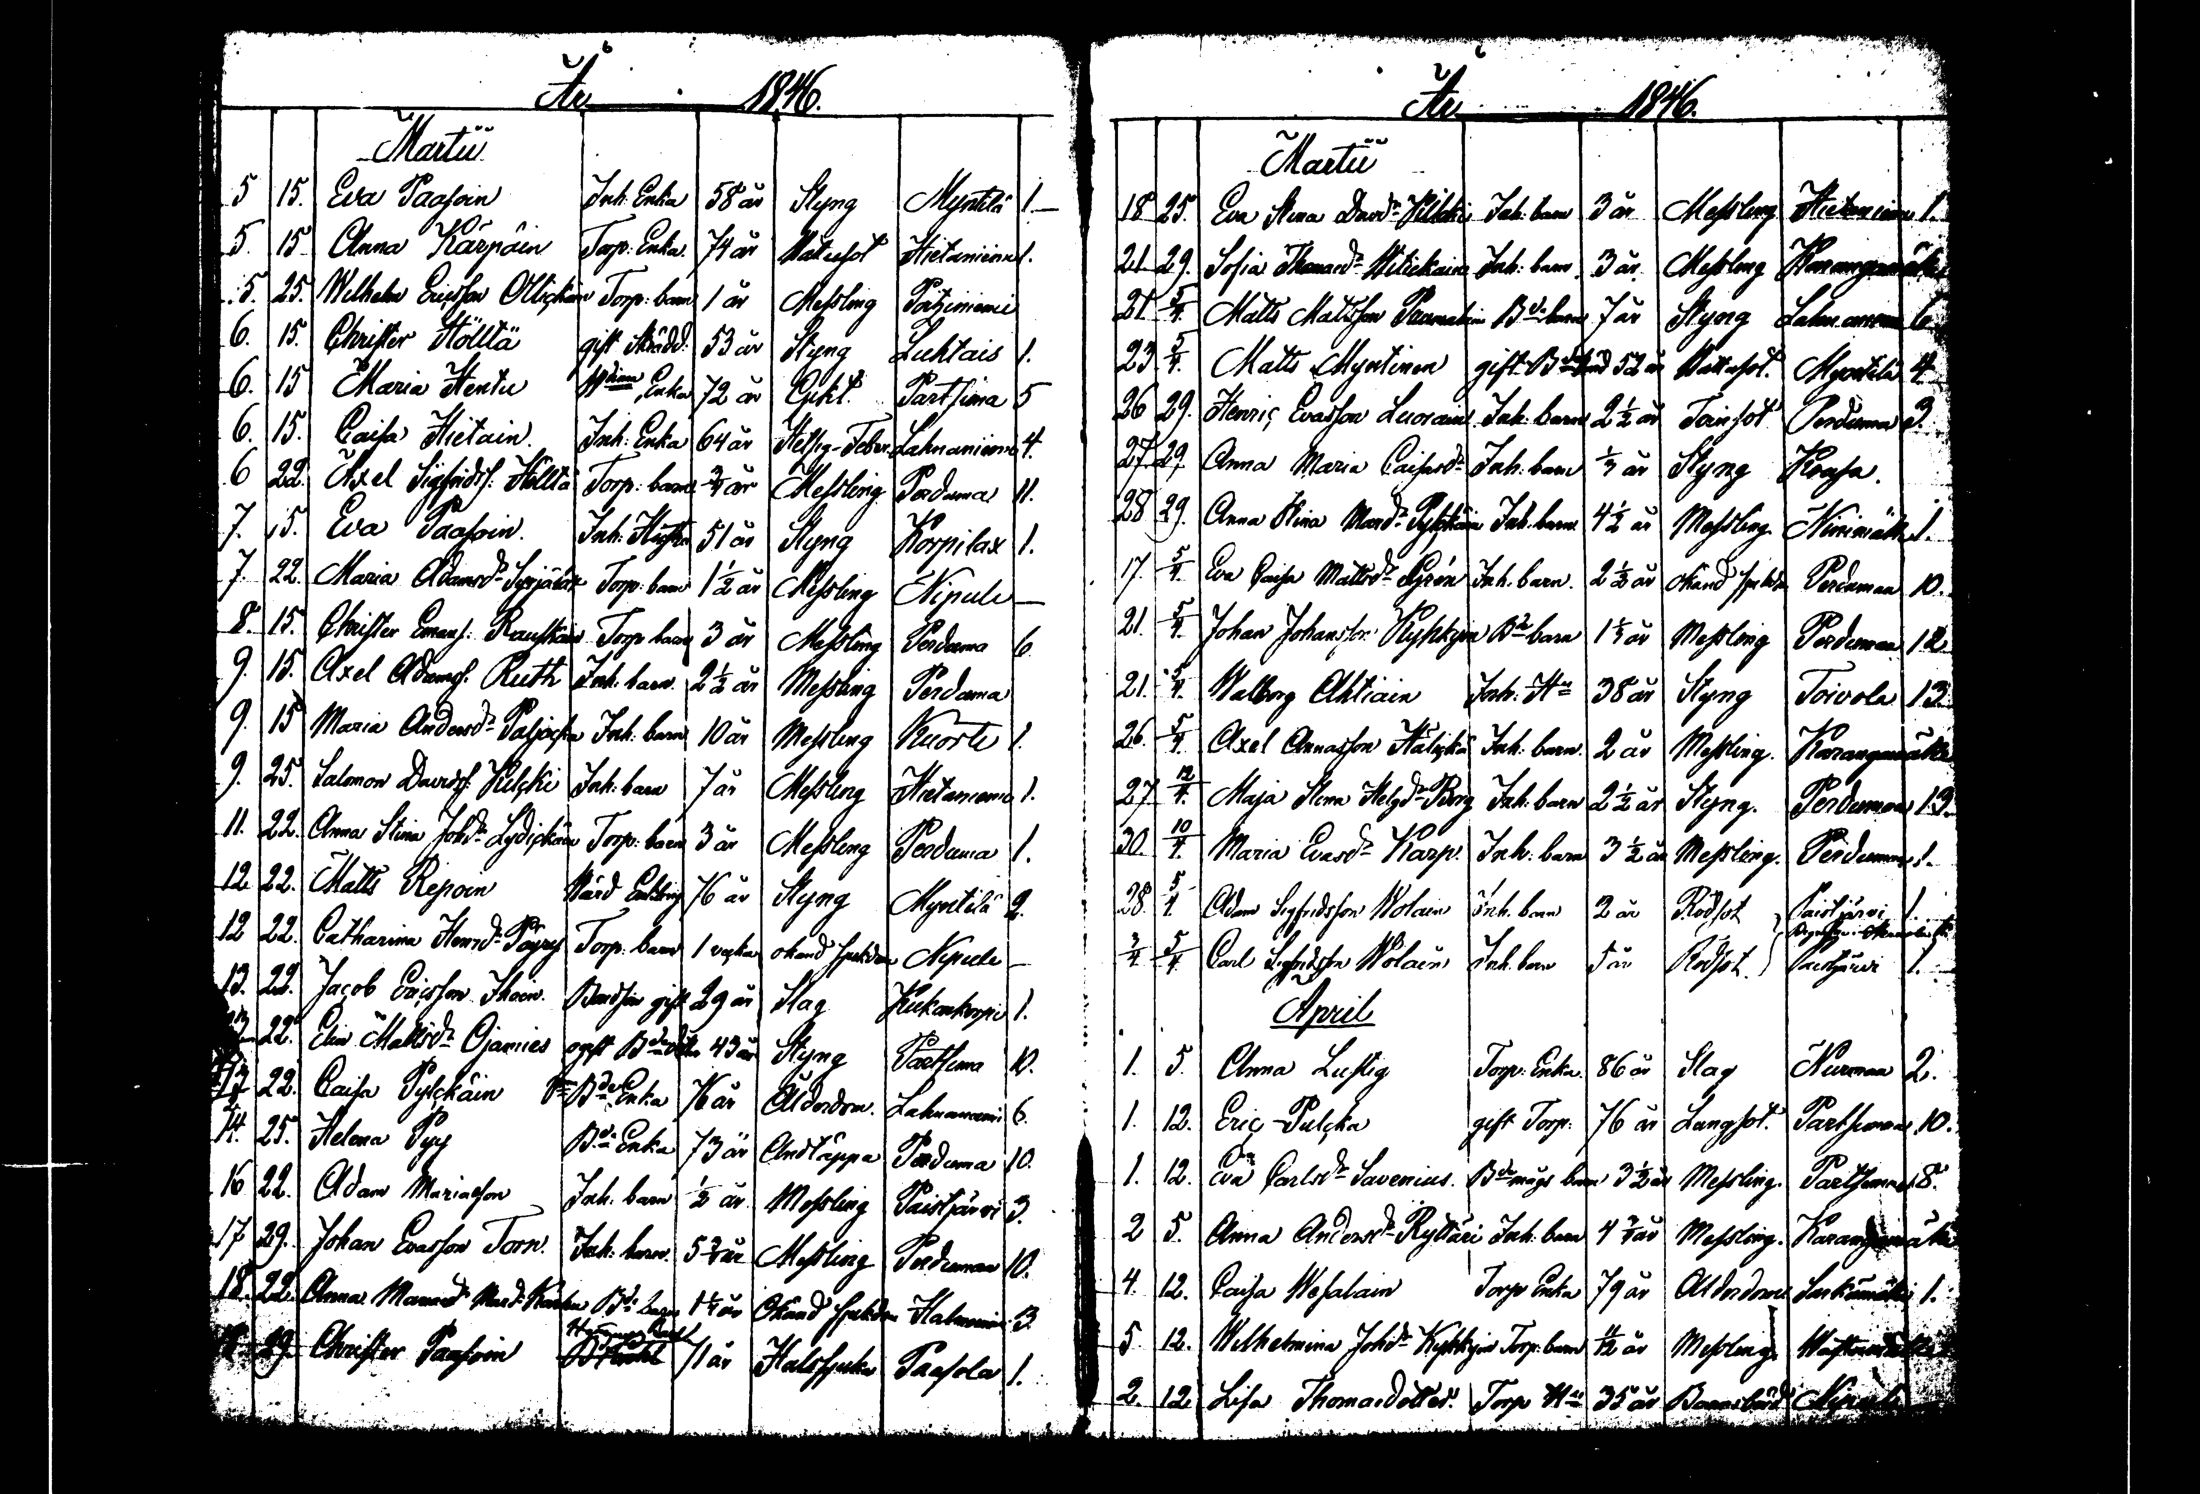 År 1846.
Martii
5 15. Eva Paasoin Inh. Enka 58 år Styng Myntilä 1.
5. 15 Anna Kärpäin Torp: Enka. 74 år Hietaniemi 1.
5. 25. Wilhelm Ericsson Ollickain Torp: barn 1 år Messling Portsiniemi
6. 15. Christer Hölttä gift 53 år Styng Luhtais 1.
6. 15 Maria Hentu Enka 72 år Partsima 5
6. 15. Caisa Hietain. Inh: Enka 64 år Hetsig-Feber Lahnaniemi 4.
6 22. Axel Sigfridss. Höltta Torp: barn 3/4 år Messling Porduma 11.
7. 15. Eva Paasoin. Inh: Hustru 51 år Styng Korpilax 1.
7. 22. Maria Adamsdr Torp: barn 1 1/2 år Messling Nipuli
8. 15. Christer Emans. Rautiain Torp barn 3 år Messling Porduma 6
9. 15. Axel Adamss. Ruth Inh: barn. 2 1/2 år Messling Porduma
9. 15 Maria Andersdr Inh: barn 10 år Messling Kuorti 1.
9. 25. Salomon Davidss. Kilcki Inh: barn 7 år Messling Hietaniemi 1.
11. 22. Anna Stina Johdr Lydickäin Torp: barn 3 år Messling Porduma 1.
12 22. Matts Repoin 76 år Styng Myntilä 2.
12 22. Catharina Henrdr Päyry Torp: barn 1 vecka okänd sjukdom Nipuli
13. 22. Jacob Ericsson Ihain. Bondson gift 29 år Slag 1.
22. Elin Mattsdr Ojanies ogift 43 år Styng Partsima 10.
22. Caisa Pylckäin Enka 76 år Ålderdom. Lahnaniemi 6
14. 25. Helena Pyy Bde Enka 73 år Andtäppa Porduma 10.
16 22. Adam Mariasson Inh: barn 1/2 år Messling Paistjärvi 3.
17 29. Johan Evasson Torn. Inh: barn. 5 3/4 år Messling Porduma 10.
18. 22. Anna barn Okänd sjukdom 3.
29. Christer Paasoin 71 år Halssjuka Paasola 1.
År 1846.
Martii
18 25. Eva Stina Davdr Kilcki Inh: barn 3 år Messling Hietaniemi 1.
21 29. Sofia Inh: barn 3 år. Messling Karangamäki
21 5/4. Matts Mattsson barn 7 år Styng
23 5/4. Matts Myntinen gift 52 år Myntilä 4
26 29. Henric Evasson Luorain Inh: barn 2 1/2 år Torrsot Porduma 3.
27 29 Anna Maria Caisasdr Inh: barn 1/3 år Styng Koasa.
28 29. Anna Stina Inh: barn 4 1/2 år Messling Ninimäki 1.
17. 5/4. Eva Caisa Mattsdr Grén Inh. barn. 2 1/2 år okänd sjukdom Porduma 10.
21. 5/4. Johan Johansson Kyhkyin Bde barn 1 1/3 år Messling Porduma 12
21. 5/4. Walborg Ahtiain Inh: Hu 38 år Styng Toivola 13.
26. 5/4. Axel Annasson Inh: barn. 2 år Messling. Karangamäki
27 12/4. Maja Stina Helgdr Borg Inh: barn 2 1/2 år Styng. Porduma 13.
30. 10/4. Maria Evasdr Karp. Inh: barn 3 1/2 år Messling. Porduma 1.
28. 5/4. Adam Sigfridsson Wolain Inh. barn 2 år Rödsot Paistjärvi 1.
3/4 5/4. Carl Sigfridsson Wolain Inh. barn 5 år Rödsot Paistjärvi 1.
April
1. 5. Anna Lustig Torp: Enka. 86 år Slag Nurmaa 2.
1. 12. Eric Pulcka gift Torp: 76 år Lungsot. Partsimaa 10.
1. 12. Eva Carlsdr Savenius. Bde mågs barn 3 1/2 år Messling. Partsimaa 8.
2 5. Anna Andersdr Ryttäri Inh: barn 4 3/4 år Messling. Karangamäki
4. 12. Caisa Wesalain Torp Enka 79 år Ålderdom 1.
5 12. Wilhelmina Johdr Kyhkyin Torp: barn år Messling.
2. 12. Lisa Thomasdotter Torp Hu 35 år Barnsbörd Nipuli